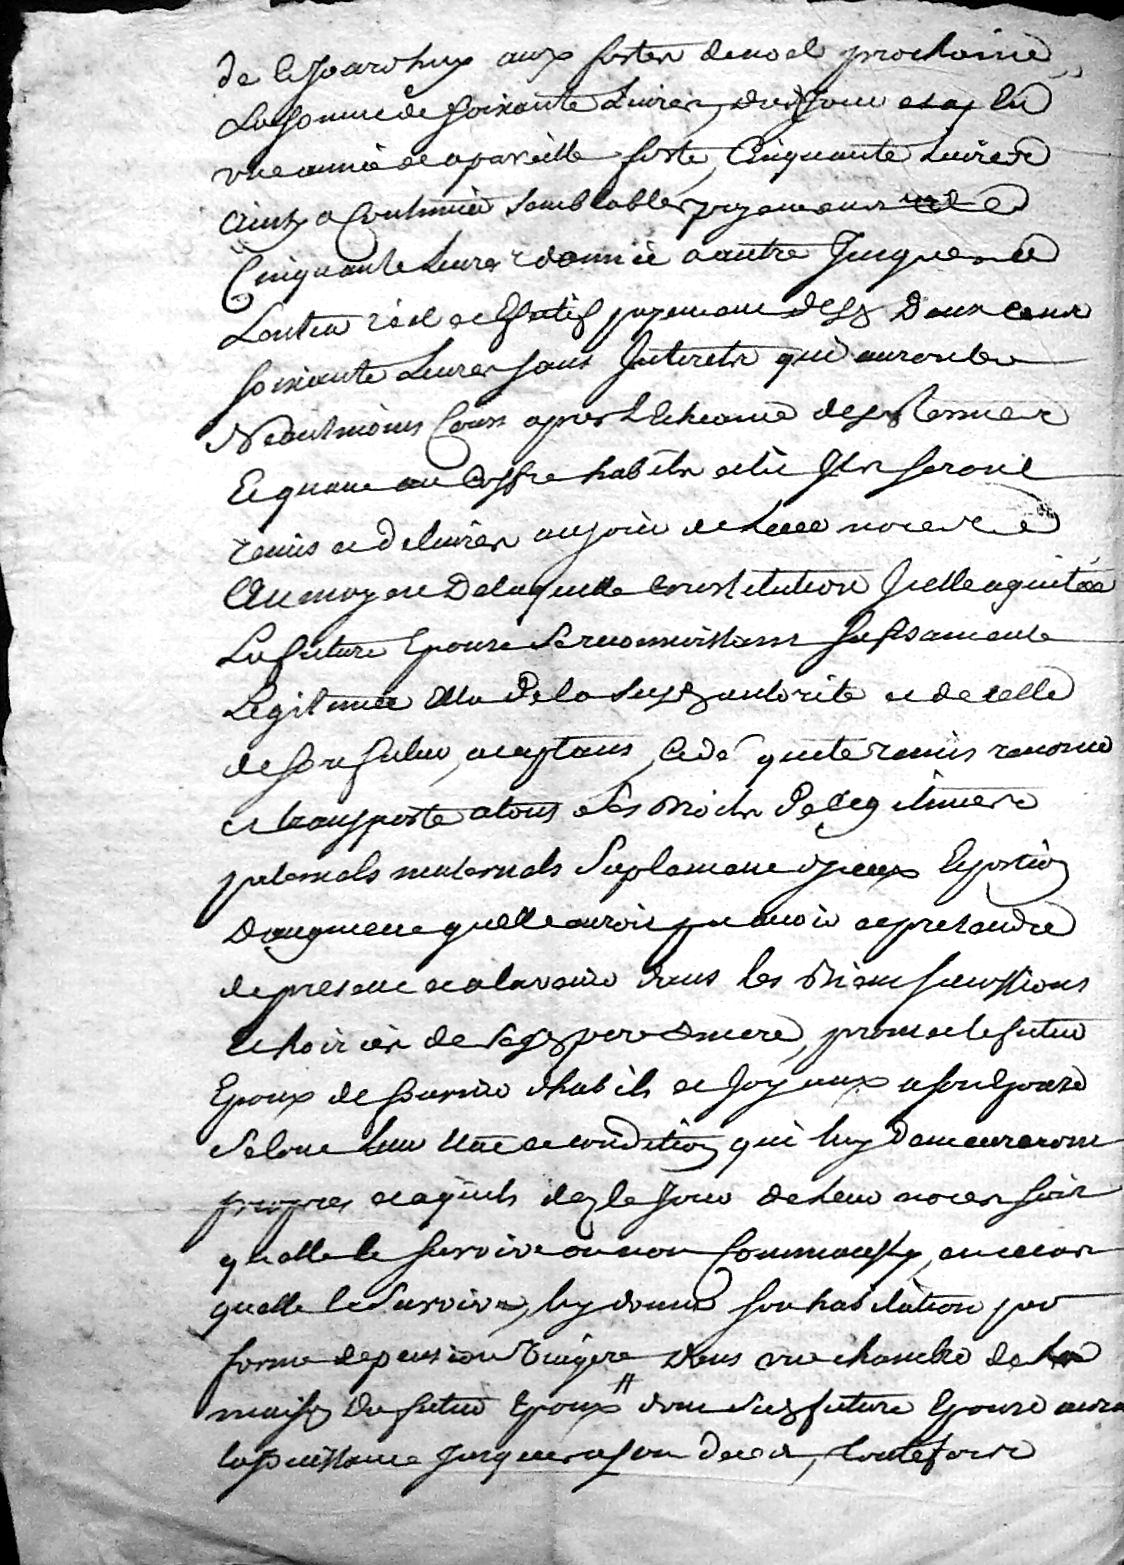 de ce Jourdhuy aux festes de noel prochaine
La somme de soixante Livres, dud Jour en un
une année et a pareille feste, Cinquante Livres
ainsy a Continuer semblables payemens de
Cinquante Livres dannée a autre Jusques a
Lentier réel et Effectif payement desd Deux cens
soixante Livres sans Interetz qui auront
Neantmoins Cours apres Lecheance desd termes
Et quant au Coffre habits et lit Ils seront
remis et délivrés au jour de leur noces
Au moyen De laquelle constitution Icelle aquitée
La future Epouse se reconnoissant sufisamment
Legitimée Ella de la susd autorite et de celle
de son futur, aceptans, Cede quite remis renonce
et transporte a tous Ses Droits De legitime
paternels maternels Suplement dyceux Et portion
d'augment quelle auroit pu avoir et pretendre
de present et a lavenir dans les Biens sucessions
Echoirie de sesd pere & mere, promet le futur
Epoux de fournir dhabits et Joyaux a son Epouse
Selon Leur Etat et condition qui luy Demeureront
propres et aquits dez le Jour de Leur noces soit
quelle le survive ou non Comme aussy, en cas
quelle le survive, luy donne son habitation par
forme de pension Viagere Dans une chambre de la
maison Du futur Epoux // dont lad future Epouse aura
la Jouissance Jusques a son deces, toutefois